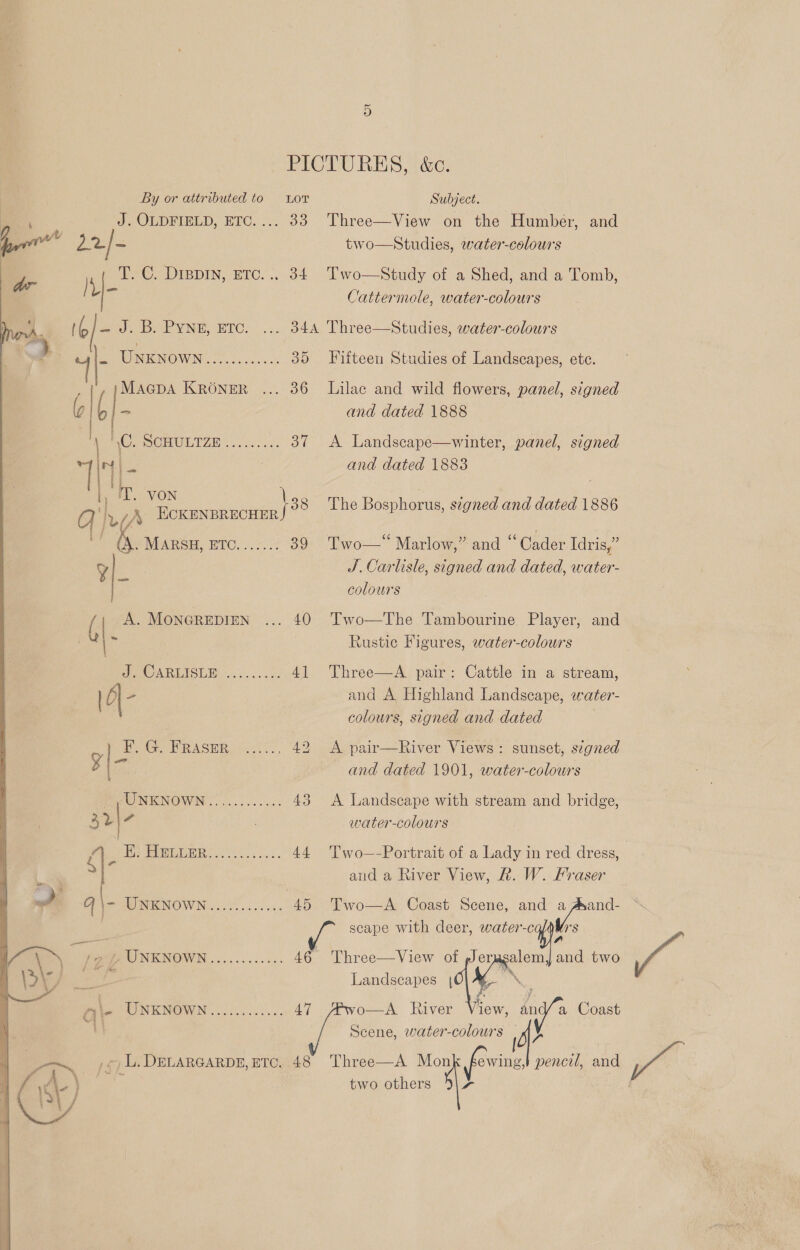 5
PICTURES, &c.
By or attributed to LOT Subject.
J. OLDFIELD, ETC. ... 33 Three—View on the Humber, and
22/- two—Studies, water-colours
T. C. DIBDIN, ETC. .. 34 Two—Study of a Shed, and a Tomb,
Cattermole, water-colours
16/- J. B. PYNE, ETC. ... 34A Three—Studies, water-colours
4/- UNKNOWN ............ 35 Fifteen Studies of Landscapes, etc.
MAGDA KRÖNER ... 36 Lilac and wild flowers, panel, signed
6/6/- and dated 1888
C. SCHULTZE ......... 37 A Landscape—winter, panel, signed
and dated 1883
T. VON ECKENBRECHER } 38 The Bosphorus, signed and dated 1886
A. MARSH, ETC. ...... 39 Two—“Marlow,” and “Cader Idris,”
J. Carlisle, signed and dated, water-
colours
A. MONGREDIEN ... 40 Two—The Tambourine Player, and
6/- Rustic Figures, water-colours
J. CARLISLE ......... 41 Three—A pair: Cattle in a stream,
10/- and A Highland Landscape, water-
colours, signed and dated
F. G. FRASER ...... 42 A pair—River Views: sunset, signed
8/- and dated 1901, water-colours
UNKNOWN ............ 43 A Landscape with stream and bridge,
32/- water-colours
E. HELLER ............ 44 Two—Portrait of a Lady in red dress,
and a River View, R. W. Fraser
9/- UNKNOWN ............ 45 Two—A Coast Scene, and a Land-
scape with deer, water-colours
UNKNOWN ............ 46 Three—View of Jerusalem, and two
13/- Landscapes 10/
UNKNOWN ............ 47 Two—A River View, and a Coast
Scene, water-colours
L. DELARGARDE, ETC. 48 Three—A Monk sewing, pencil, and
two others